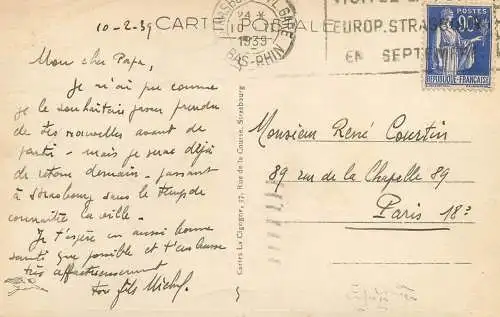 10-2-39
CARTE POSTALE
STRASBOURG GARE
10
1939
BAS-RHIN
EUROP. STRASBOURG
EN SEPTEMBRE
POSTES
90c
REPUBLIQUE-FRANÇAISE
Mon cher Papa,
Je n'ai pu comme
je le souhaitais prendre
de tes nouvelles avant de
partir - mais je serai déjà
de retour demain - passant
à Strasbourg sans le temps de
connaître la ville -
Je t'espère en aussi bonne
santé que possible et t'embrasse
très affectueusement
ton fils Michel.
Cartes La Cigogne, 37, Rue de la Course, Strasbourg
Monsieur René Courtin
89 rue de la Chapelle 89
Paris 18e